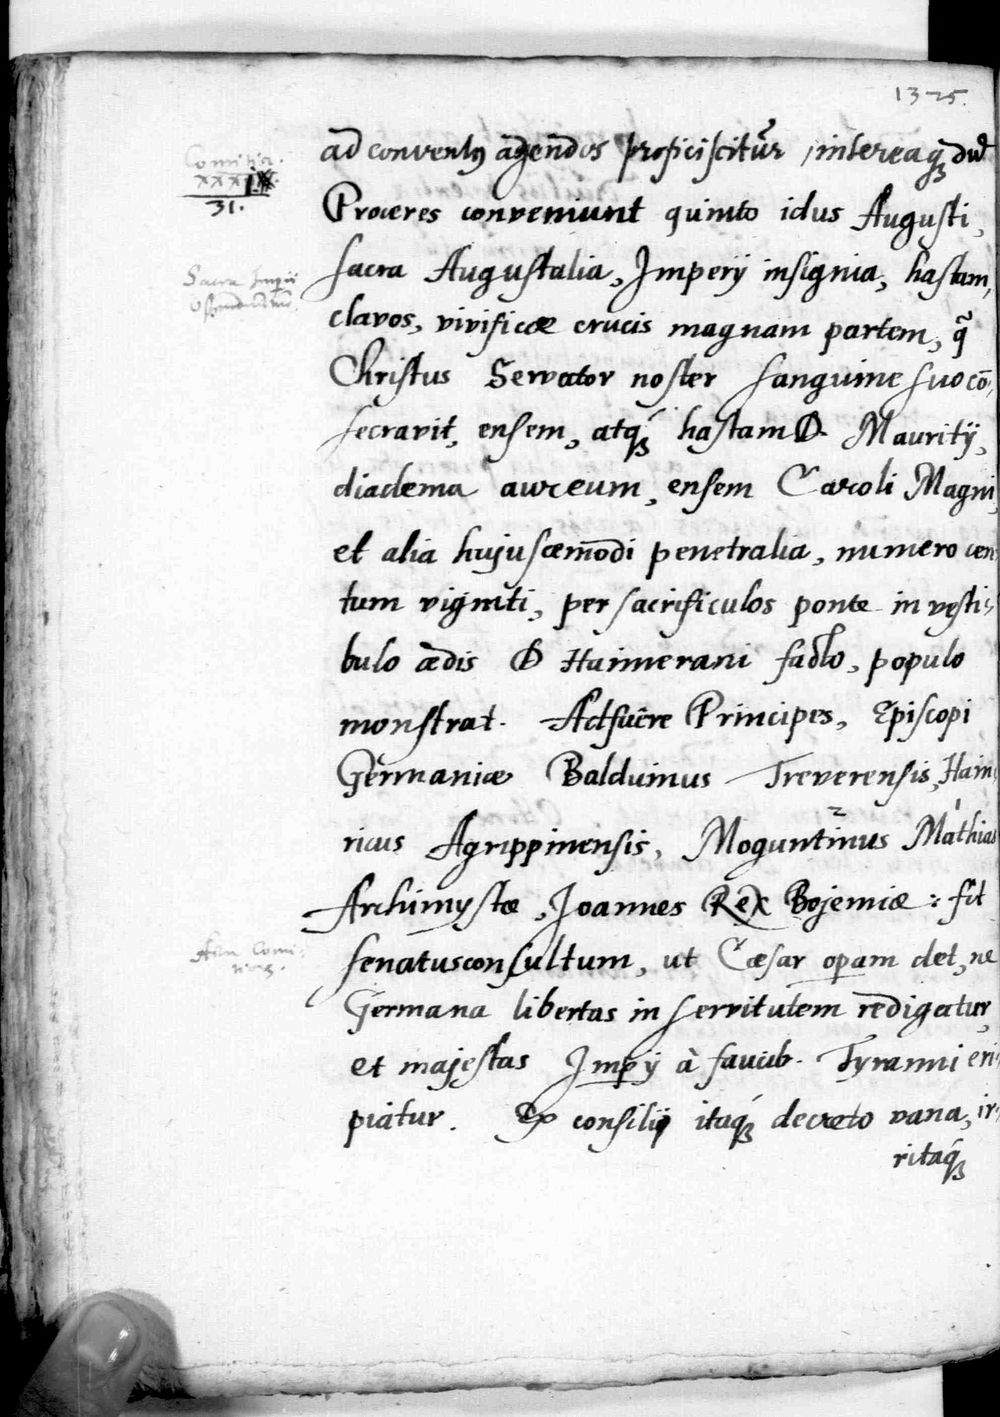 1325.
ad conventꝰ agendos proficiscitur, intereaqꝫ dū
Proceres conveniunt quinto idus Augusti,
sacra Augustalia, Imperij insignia, hastam,
clavos, vivificæ crucis magnam partem, q̃
Christus Servator noster sanguine suo cō-
secravit, ensem, atqꝫ hastam D. Mauritij,
diadema aureum, ensem Caroli Magni,
et alia hujuscemodi penetralia, numero cen
tum viginti, per sacrificulos ponte in vesti-
bulo ædis D Haimerani facto, populo
monstrat. Adfuêre Principes, Episcopi
Germaniæ Balduinus Treverensis, Hain-
ricus Agrippinensis, Moguntinus Mathias
Archimystæ, Joannes Rex Bojemiæ: fit
senatusconsultum, ut Cæsar operam det, ne
Germana libertas in servitutem redigatur,
et majestas Impij à faucib. Tyranni eri-
piatur. Ex consilij itaqꝫ decreto vana, ir-
ritaqꝫ
Comitia.
31.
Sacra Imperii